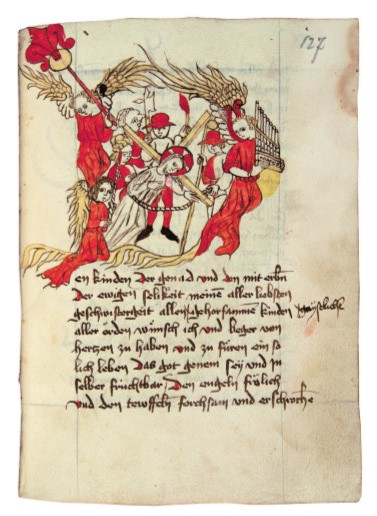 127
en kinden der genad vnd den mit erbn
der ewigen selikeit meinen aller liebsten
geschwistergeit allen gehorsamme kinden geystlichē
aller örden wünsch ich vnd beger von
hertzen zu haben vnd zu füren ein so
lich leben das got genem sey vnd in
selber fruchtbar Den engeln frölich
vnd den tewffeln forchsam vnd erschrockē